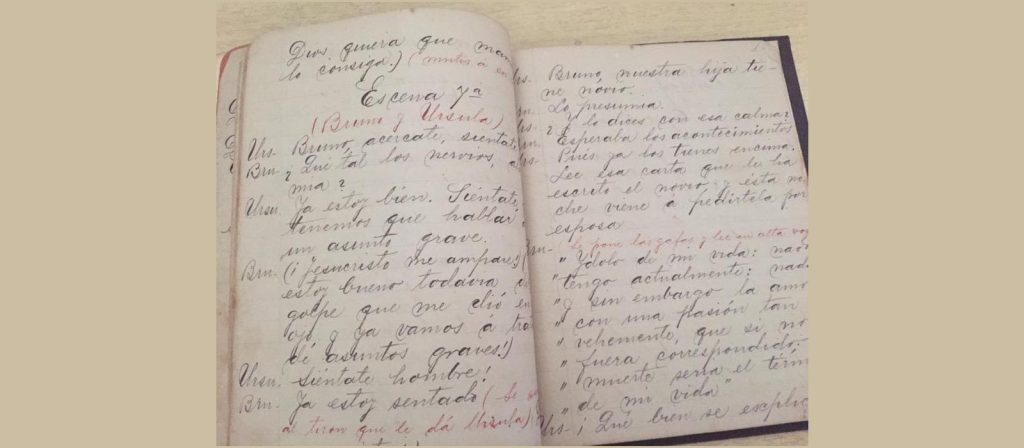 Dios quiera que
lo consiga.) (mutis
Escena 7ª
(Bruno y Ursula)
Urs. Bruno, acercate, siéntate
Bru. ¿Qué tal los nervios,
mia?
Ursu. Ya estoy bien. Siéntate,
tenemos que hablar
un asunto grave.
Bru. (¡Jesucristo me ampare!
estoy bueno todavia
golpe que me dió en
ojo, y ya vamos á
de asuntos graves!)
Ursu. Siéntate hombre!
Bru. Ya estoy sentado (
al tiron que le dá Ursula)
Bruno, nuestra hija tie-
ne novio.
Lo presumia.
¿Y lo dices con esa calma?
Esperaba los acontecimientos
Pues ya los tienes encima.
Lee esa carta que le ha
escrito el novio; y ésta no-
che viene a pedirtela por
esposa
Bru- (Se pone las gafas y lee en alta voz
" Ydolo de mi vida:
" tengo actualmente:
" y sin embargo la amo
" con una pasión tan
" vehemente, que si no
" fuera correspondido;
" muerte seria el
" de mi vida"
Urs- ¡Qué bien se explica